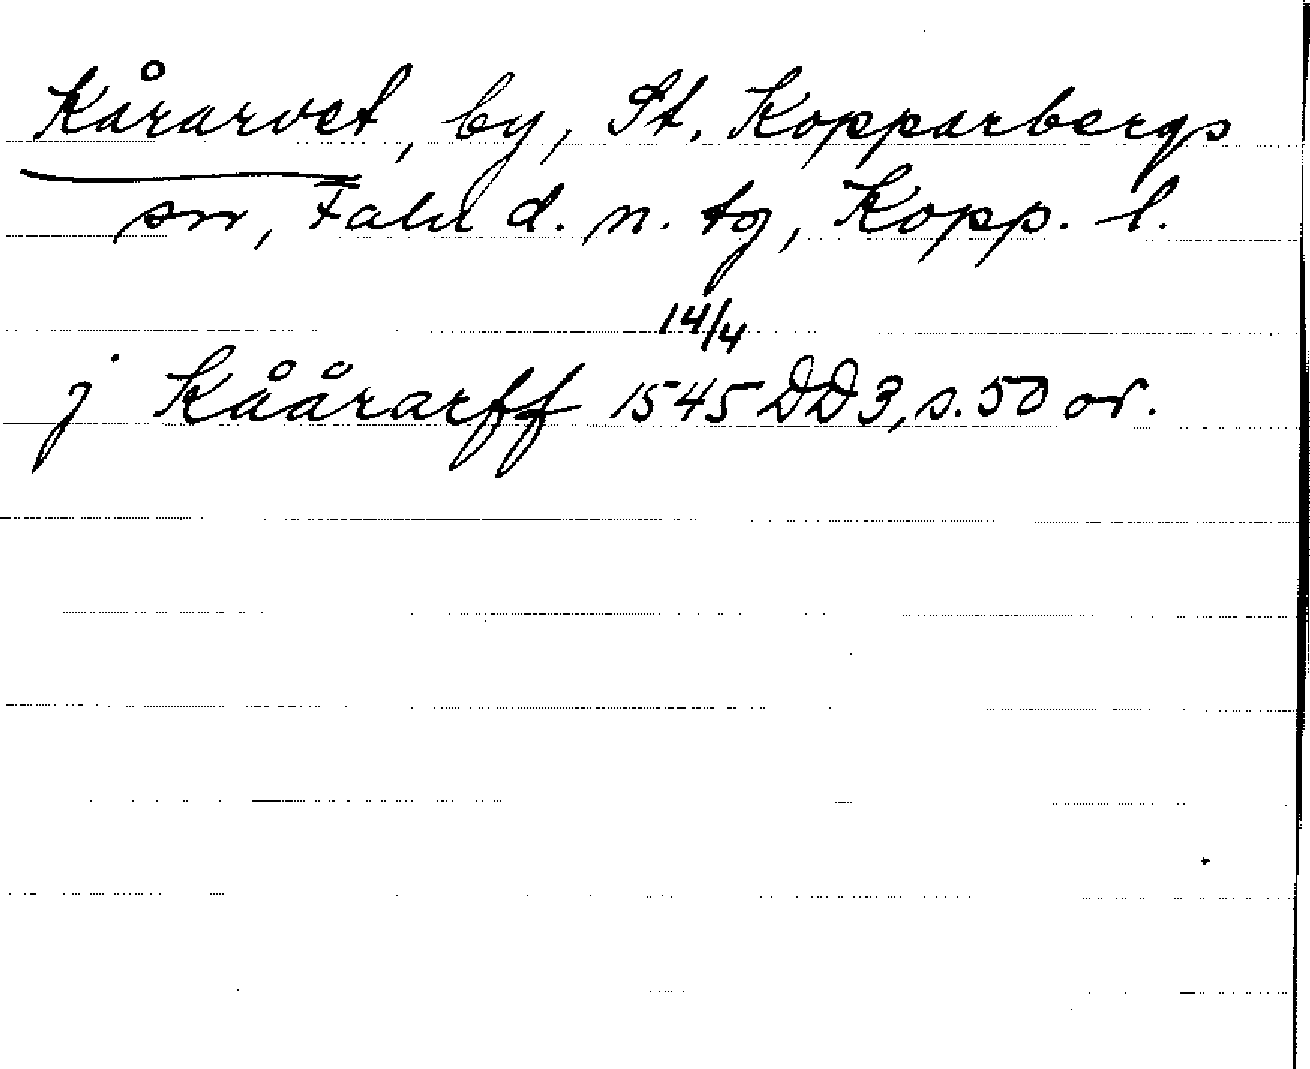 Kårarvet, by, St. Kopparbergs
sn, Falu d. n. tg, Kopp. l.
14/4
j Kåårarff 1545 DD3, s. 50 or.